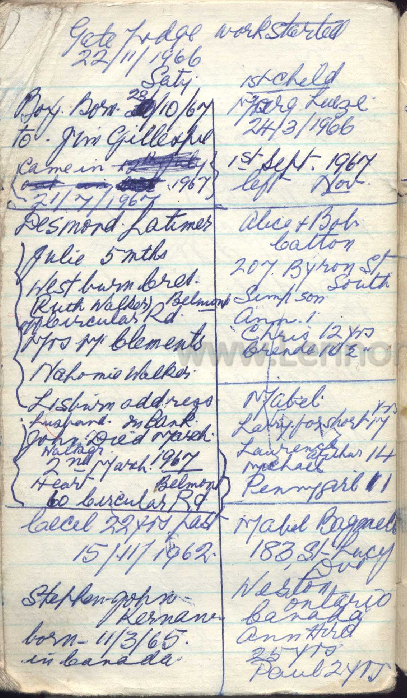 Gate Lodge work started
22/11/1966
Saty.
Boy. Born 28/10/67
to Jim Gillespie
came in
1967
21/7/1967
1st Child
Marg
24/3/1966
1st Sept. 1967
left Nov.
Desmond Latimer
Julie 5 mths
Westburn Cres.
Ruth Walker Belmont
Circular Rd
Mrs M Clements
Nahomie Walker
Lisburn address
husband in Bank
John Died March
Walker
2nd March 1967
Heart Belmont
60 Circular Rd
Alice + Bob
Catton
207 Byron St
South
Simpson
Ann.
Chris 12 yrs
Brenda 10½
Mabel
Larry for short 17 yrs
Laurence
Michael 14
Penny girl 11
Cecel 22 yrs past
15/11/1962
Stephen John
Kernan
born 11/3/65.
in Canada
Mabel Bagnell
183, St Lucy
Dve
Weston
Ontario
Canada
Ann Hird
25 yrs
Paul 2 yrs